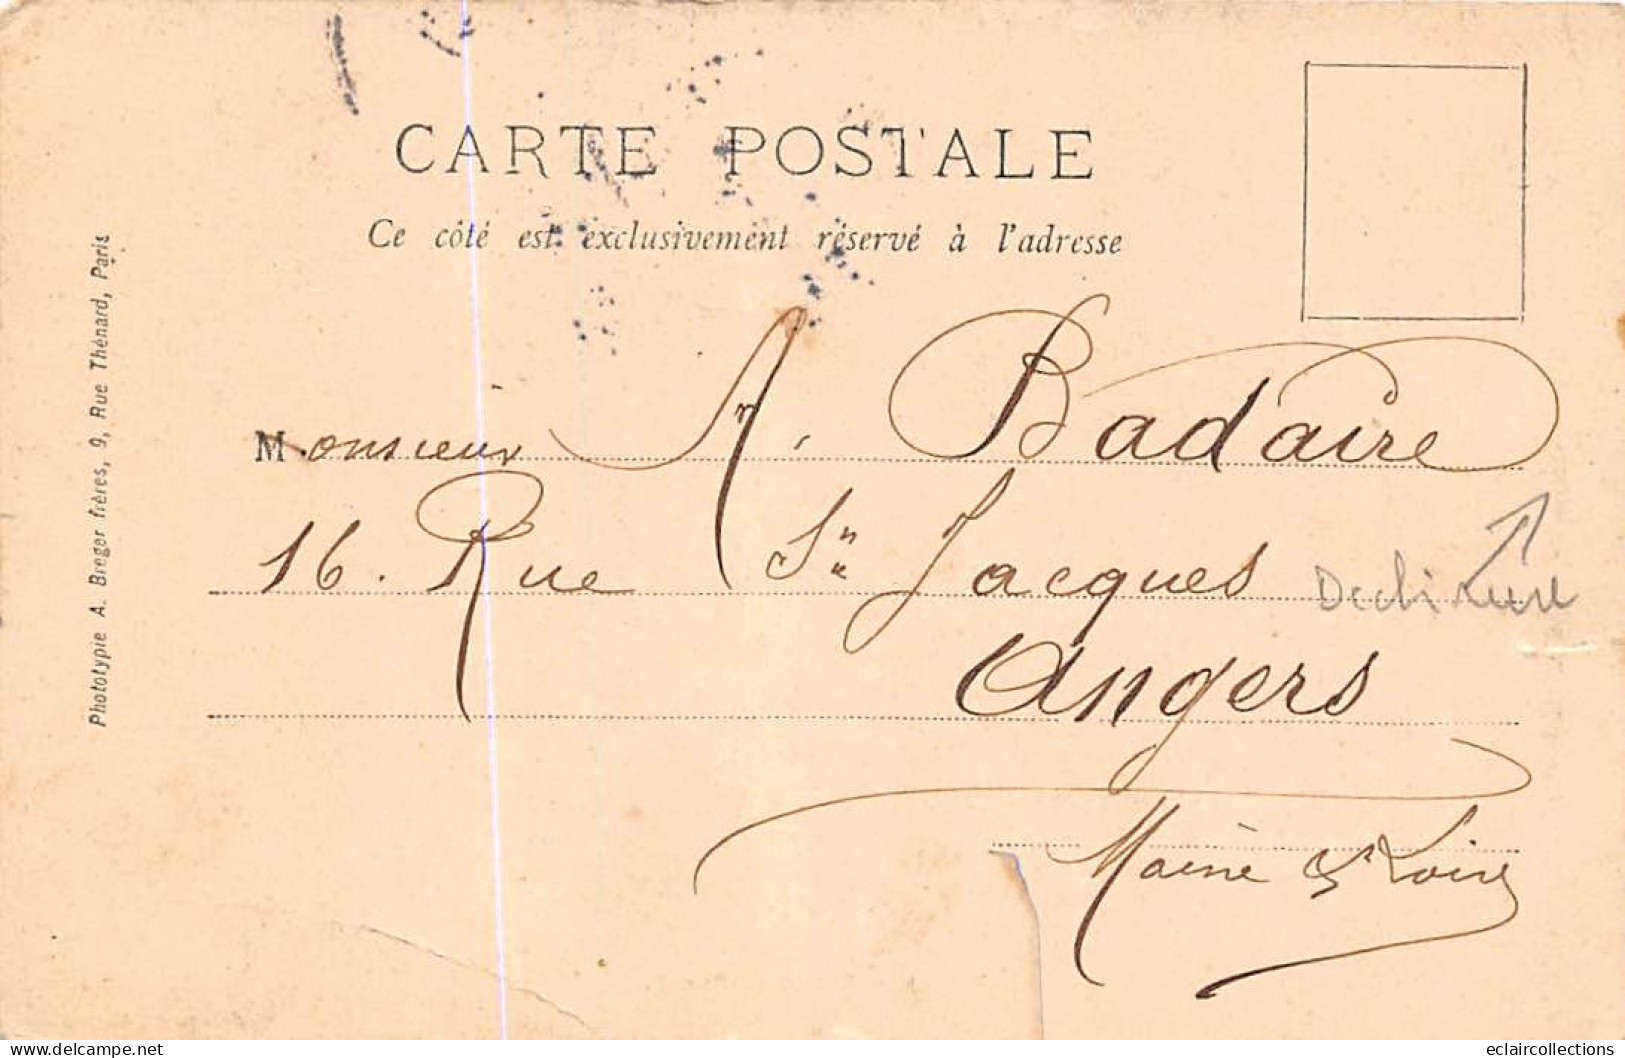 CARTE POSTALE
Ce côté est exclusivement réservé à l'adresse
Monsieur A. Badaire
16. Rue St Jacques
Angers
Maine & Loire
Déchirure
Phototypie A. Breger frères, 9, Rue Thénard, Paris
www.delcampe.net
eclaircollections